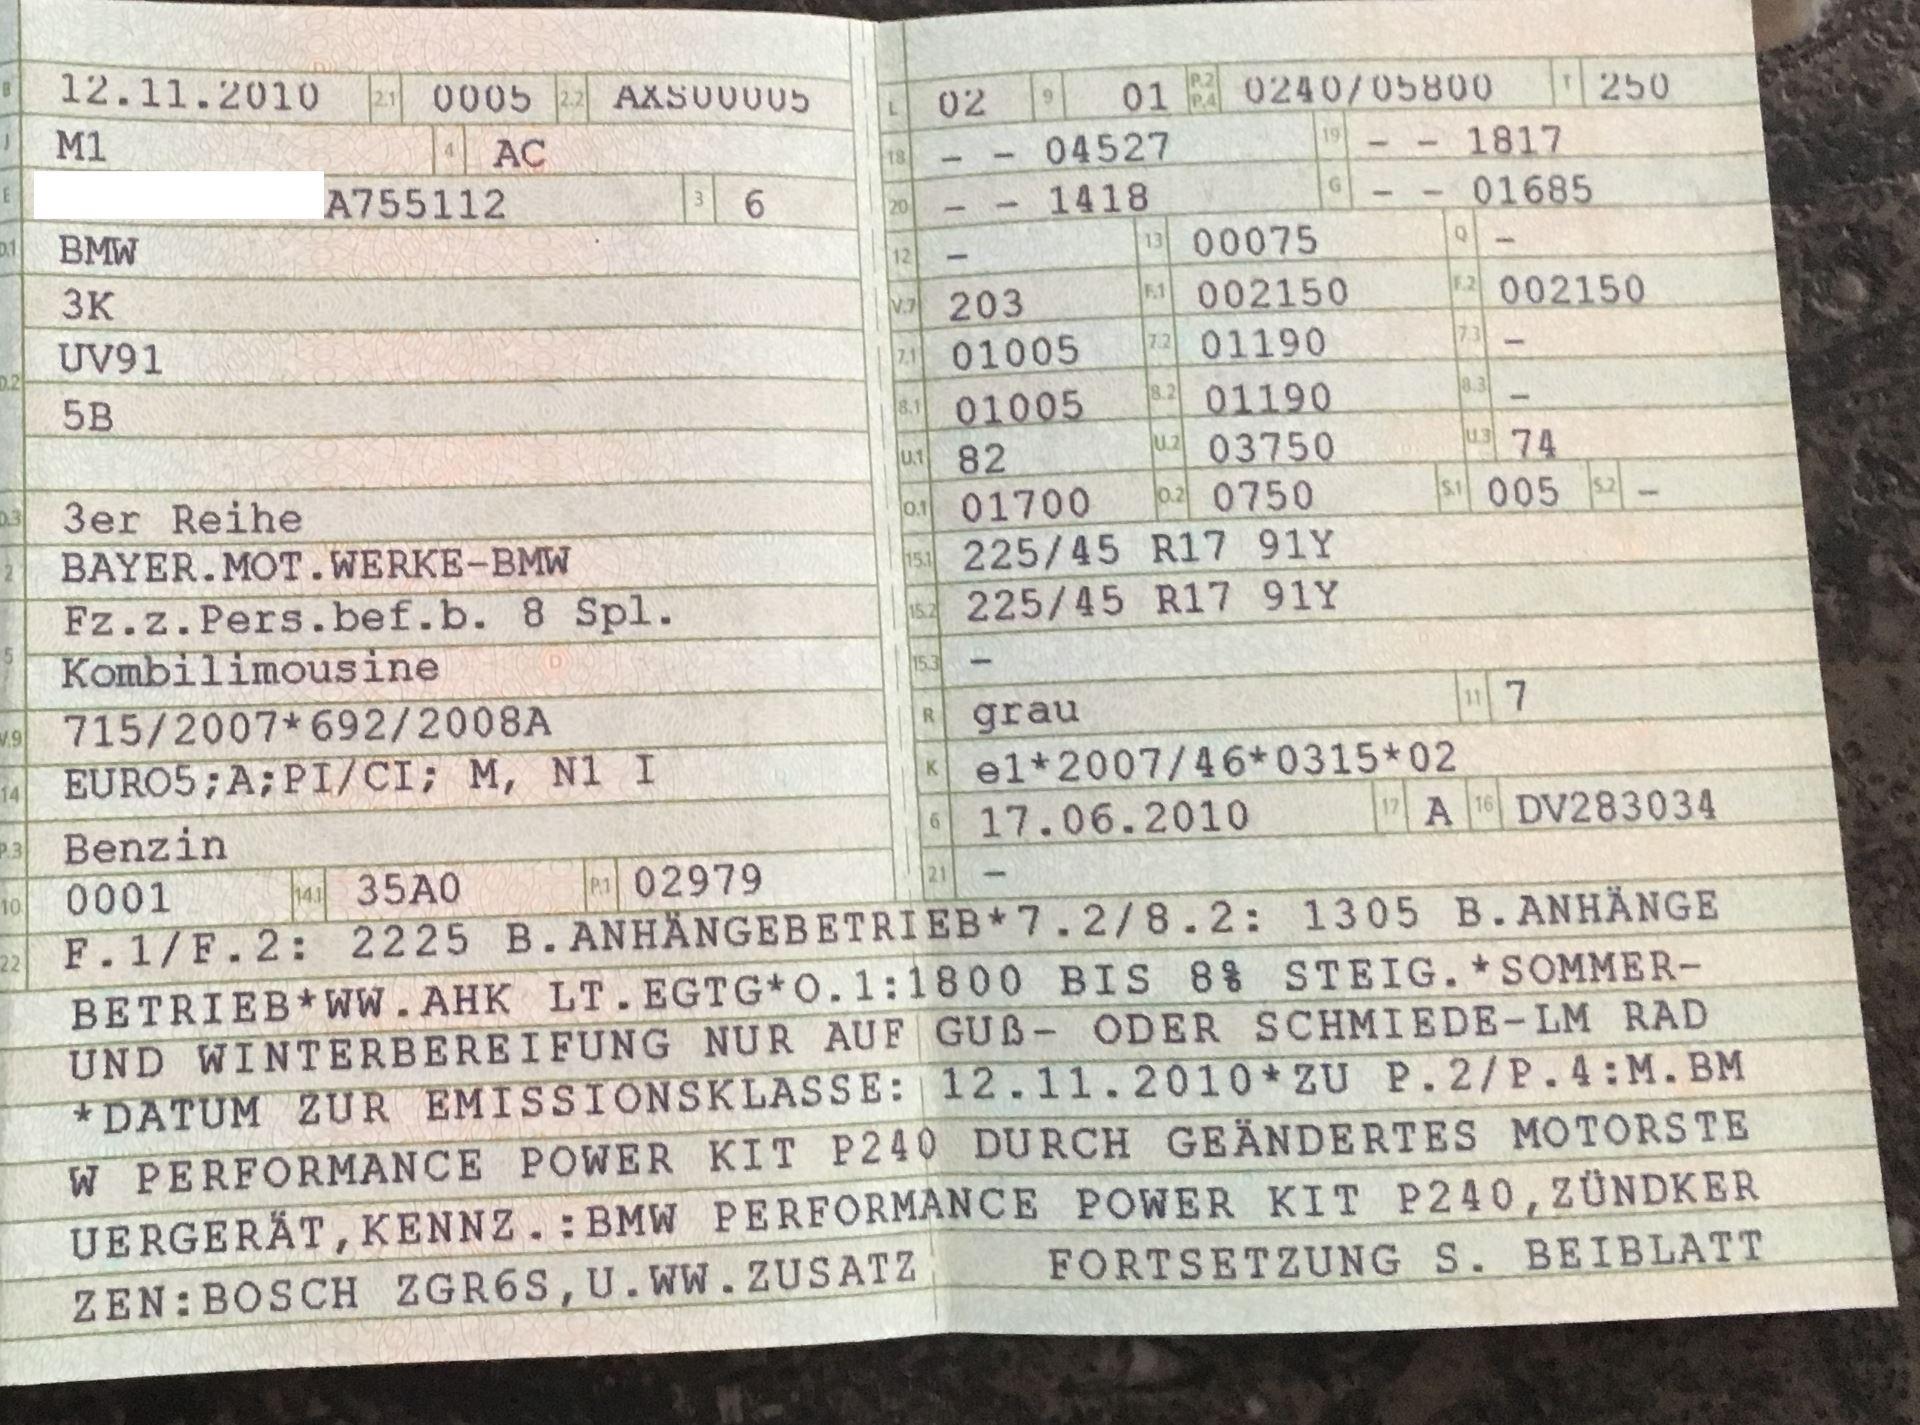 B 12.11.2010 2.1 0005 2.2 AXS00005
J M1 4 AC
E A755112 3 6
D.1 BMW
3K
D.2 UV91
5B
D.3 3er Reihe
2 BAYER.MOT.WERKE-BMW
Fz.z.Pers.bef.b. 8 Spl.
5 Kombilimousine
V.9 715/2007*692/2008A
14 EURO5;A;PI/CI; M, N1 I
P.3 Benzin
10 0001 14.1 35A0 P.1 02979
L 02 9 01 P.2 P.4 0240/05800 T 250
18 – – 04527 19 – – 1817
20 – – 1418 G – – 01685
12 – 13 00075 Q –
V.7 203 F.1 002150 F.2 002150
7.1 01005 7.2 01190 7.3 –
8.1 01005 8.2 01190 8.3 –
U.1 82 U.2 03750 U.3 74
O.1 01700 O.2 0750 S.1 005 S.2 –
15.1 225/45 R17 91Y
15.2 225/45 R17 91Y
15.3 –
R grau 11 7
K e1*2007/46*0315*02
6 17.06.2010 17 A 16 DV283034
21 –
22 F.1/F.2: 2225 B.ANHÄNGEBETRIEB*7.2/8.2: 1305 B.ANHÄNGE
BETRIEB*WW.AHK LT.EGTG*O.1:1800 BIS 8% STEIG.*SOMMER-
UND WINTERBEREIFUNG NUR AUF GUß- ODER SCHMIEDE-LM RAD
*DATUM ZUR EMISSIONSKLASSE: 12.11.2010*ZU P.2/P.4:M.BM
W PERFORMANCE POWER KIT P240 DURCH GEÄNDERTES MOTORSTE
UERGERÄT,KENNZ.:BMW PERFORMANCE POWER KIT P240,ZÜNDKER
ZEN:BOSCH ZGR6S,U.WW.ZUSATZ FORTSETZUNG S. BEIBLATT